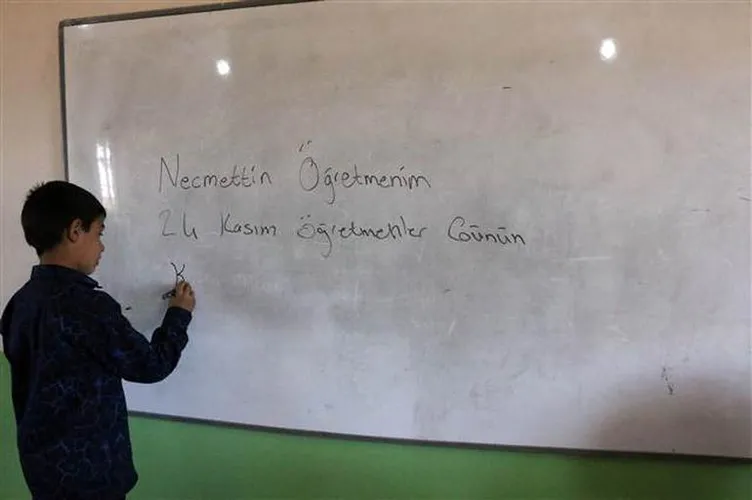 Necmettin Öğretmenim
24 Kasım öğretmenler Günün
K